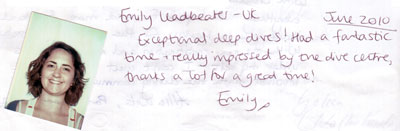 Emily Leadbeater - UK June 2010
Exceptional deep dives! Had a fantastic
time + really impressed by the dive centre,
thanks a lot for a great time!
Emily